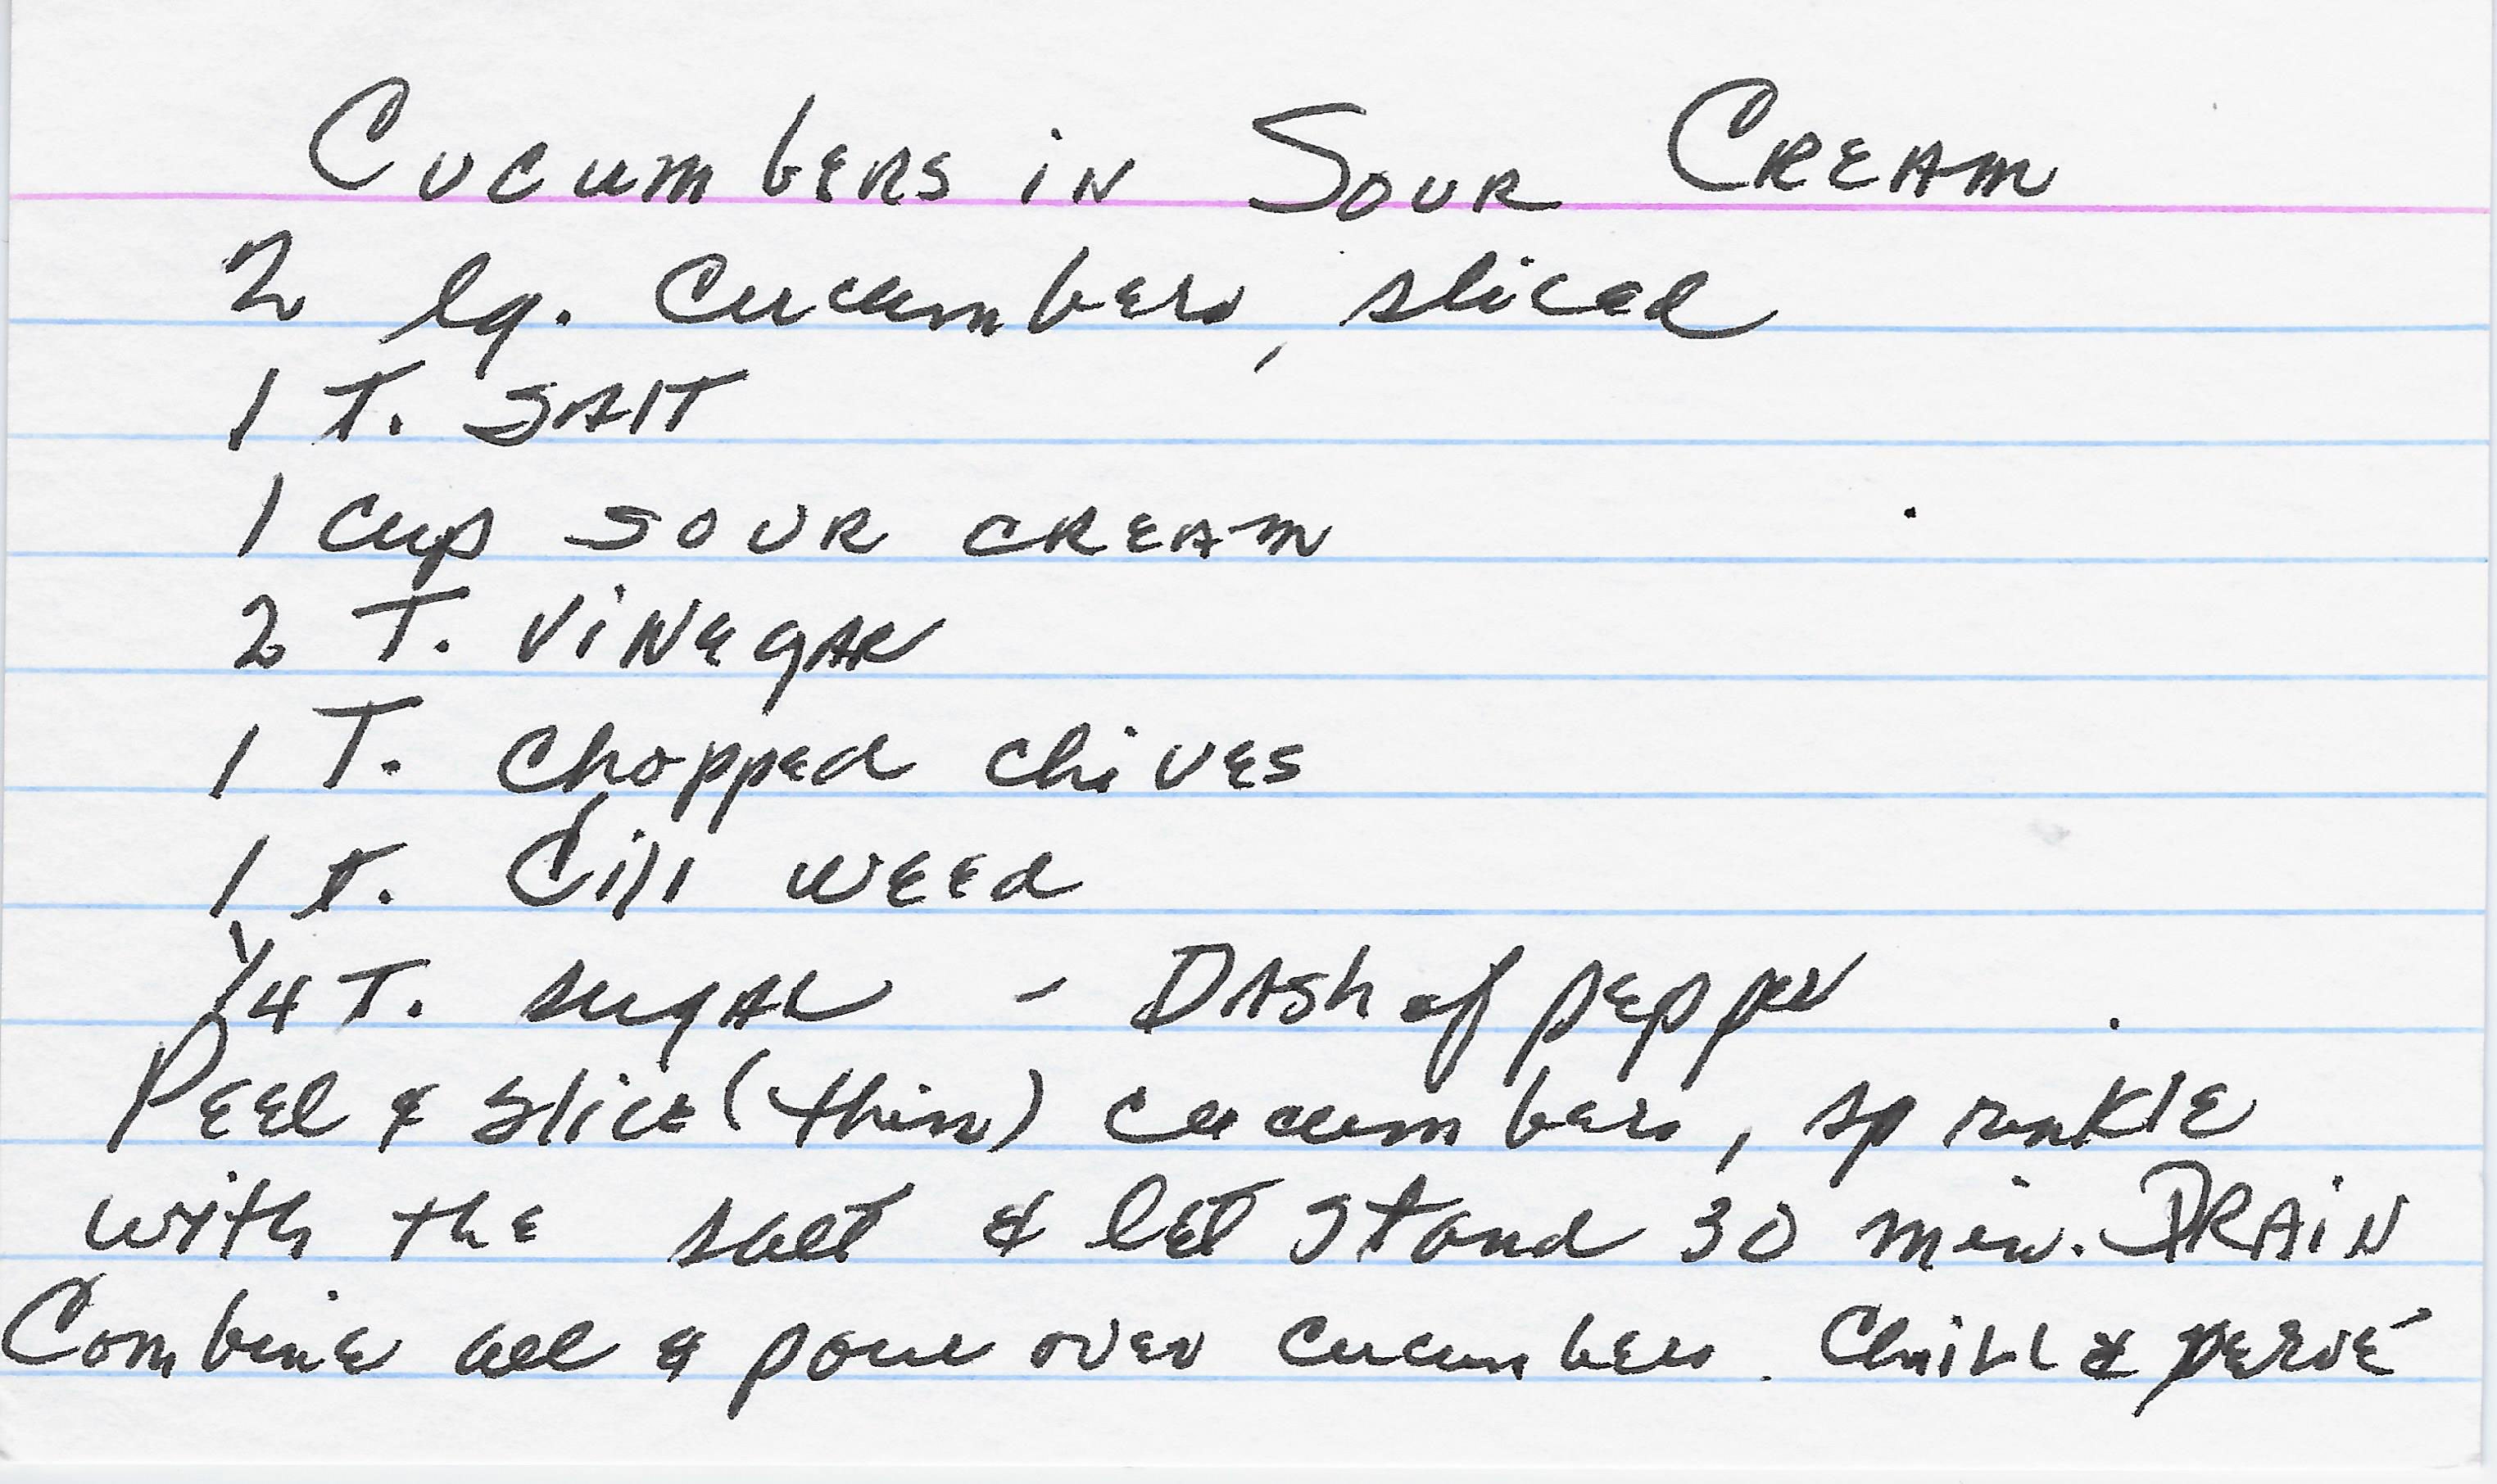 Cucumbers in Sour Cream
2 lg. cucumbers, sliced
1 T. salt
1 cup sour cream
2 T. vinegar
1 T. chopped chives
1 t. dill weed
1/4 T. sugar - Dash of pepper
Peel & slice (thin) cucumbers, sprinkle
with the salt & let stand 30 min. DRAIN
Combine all & pour over cucumbers. Chill & serve